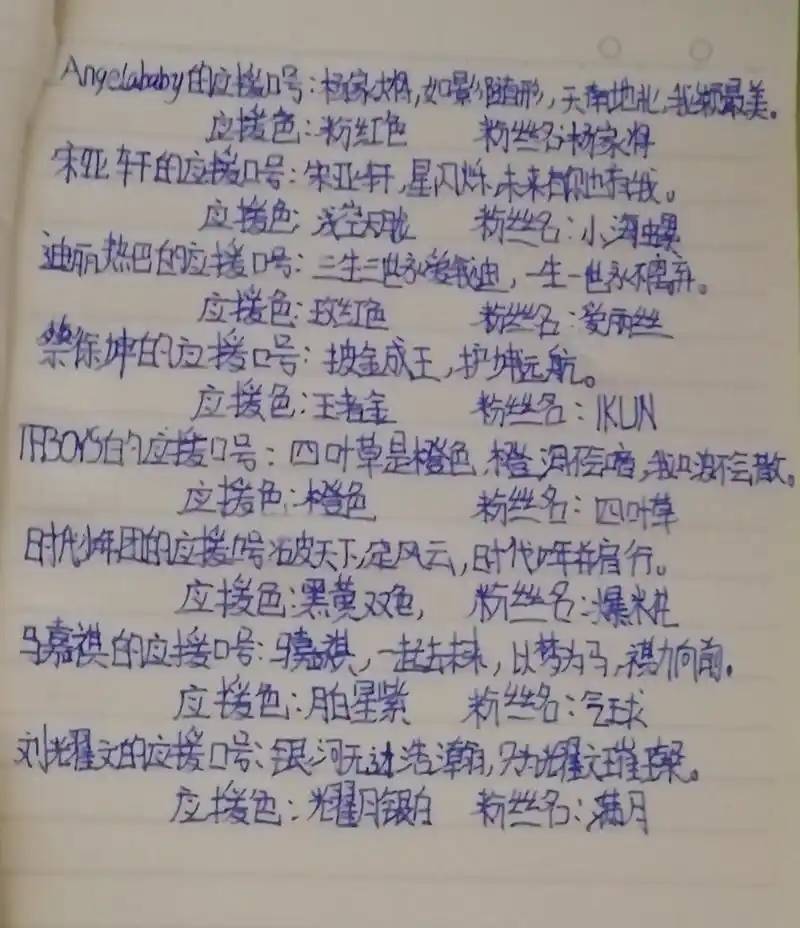 Angelababy的应援口号:杨家大将,如影随形,天南地北,我颖最美。
应援色:粉红色 粉丝名:杨家将
宋亚轩的应援口号:宋亚轩,星闪烁,未来有你也有我。
应援色:浅空天 粉丝名:小海螺
迪丽热巴的应援口号:三生三世永爱我迪,一生一世永不离弃。
应援色:玫红色 粉丝名:爱丽丝
蔡徐坤的应援口号:披金成王,护坤远航。
应援色:王者金 粉丝名:IKUN
TFBOYS的应援口号:四叶草是橙色,橙海不会暗,我只说不会散。
应援色:橙色 粉丝名:四叶草
时代少年团的应援口号:破天下,定风云,时代少年并肩行。
应援色:黑黄双色, 粉丝名:爆米花
马嘉祺的应援口号:马嘉祺,一起去未来,以梦为马,祺力向前。
应援色:月白星紫 粉丝名:气球
刘耀文的应援口号:银河无边浩瀚,只为耀文璀璨。
应援色:光耀月银白 粉丝名:满月